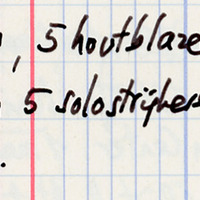 , 5 houtblaze
5 solostrijkers
.